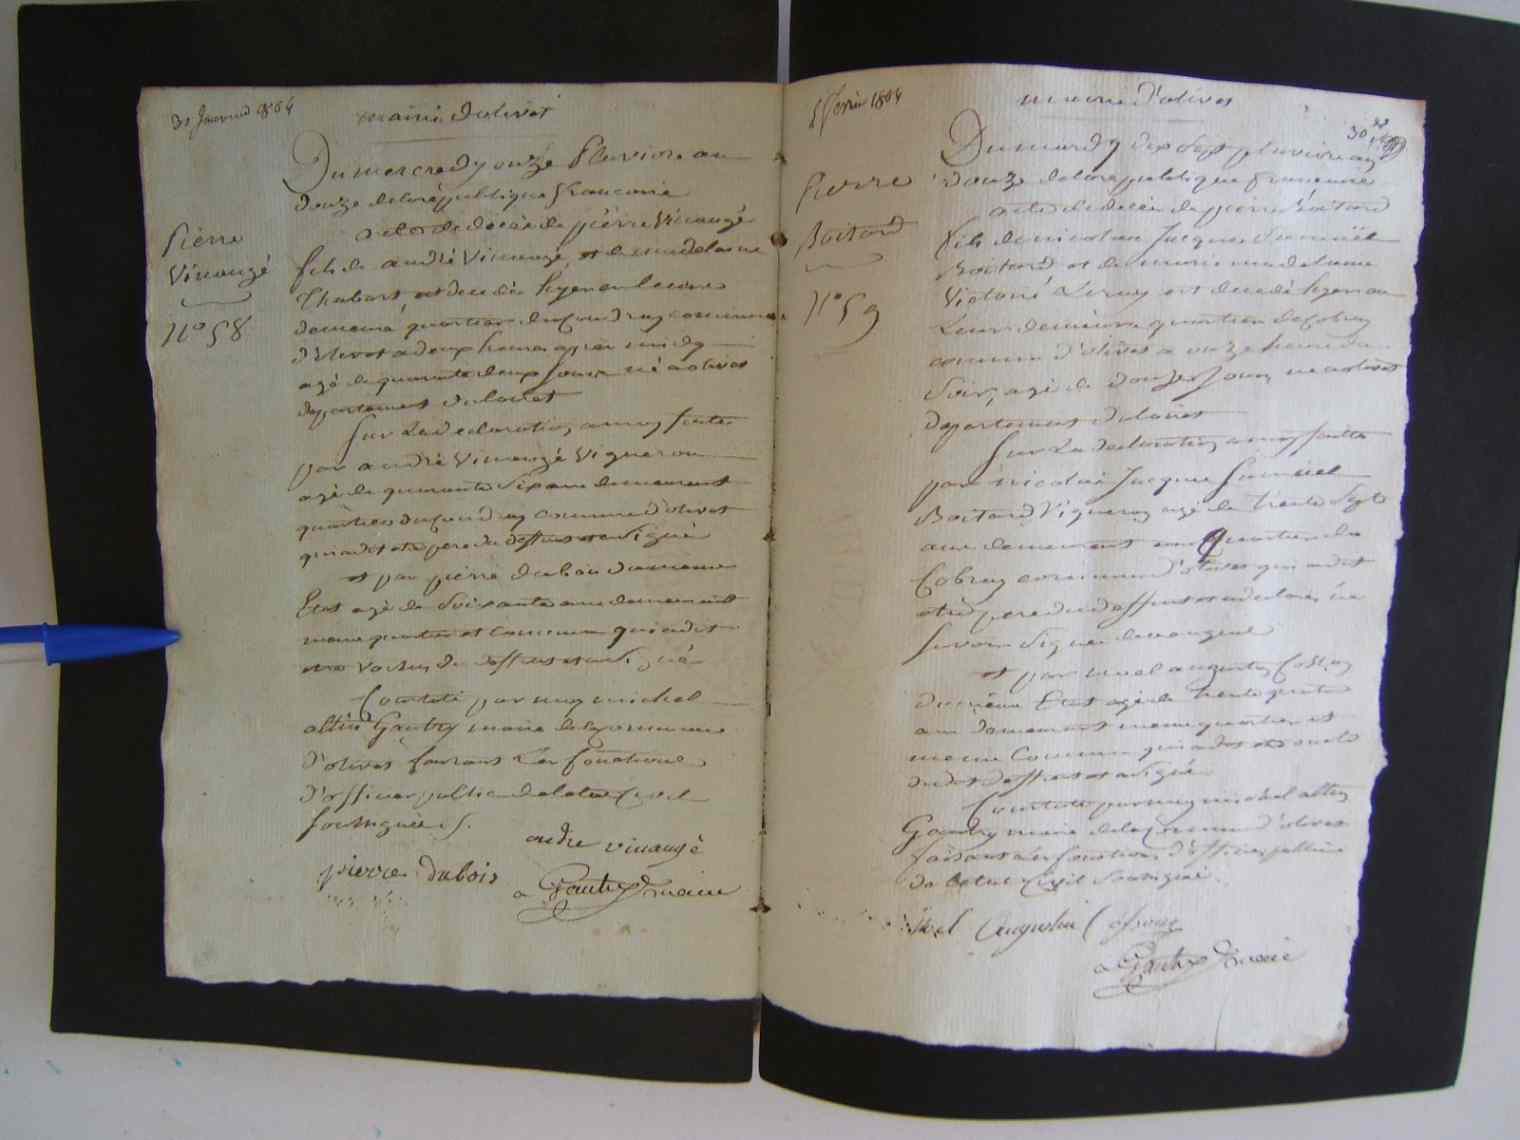 31 Janvier 1804
mairie d'olivet
Du mercredy onze Pluviose an
douze de la republique francaise
acte de décès de pierre Vinauge
Pierre
Vinauge
N° 58
fils de andré Vinauge et de madelaine
Thabart est decedé hyer en
demeure quartier du Coudray commune
d'olivet a deux heures apres midy
agé de quarante deux jours né a olivet
departement du loiret
Sur La declaration a moy faite
par andré Vinaugé Vigneron
agé de quarante six ans demeurant
quartier du Coudray commune d'olivet
qui a dit etre pere du deffunt et a signé
et par pierre dubois du meme
Etat agé de Soixante ans demeurant
meme quartier et commune qui a dit
etre Voisin du deffunt et a signé
Constaté par moy michel
altin Gautry maire de la commune
d'olivet faisant Les fonctions
d'officier public de letat Civil
Soussigné
andre vinaugé
pierre dubois
a Gautry maire
5 fevrier 1804
mairie d'olivet
30
Du mardy dix Sept pluviose an
douze de la republique francaise
acte de decès de pierre Boitard
Pierre
Boitard
N° 59
fils de nicolas Jacques Samuel
Boitard et de marie madelaine
Victoire Leroy est decedé hyer en
Leur demeure quartier de Cobray
commune d'olivet a onze heures du
Soir, agé de douze Jours né a olivet
departement du loiret
Sur La declaration a moy faitte
par nicolas Jacques Samuel
Boitard Vigneron agé de Trente Sept
ans demeurant au quartier du
Cobray commune d'olivet qui a dit
etre pere du deffunt et a declaré ne
Savoir Signer de ce enquis
et par augustin
du meme Etat agé de trente quatre
ans demeurant meme quartier et
meme Commune qui a dit etre oncle
dudit deffunt et a signé
Constaté par moy michel altin
Gautry maire de la Commune d'olivet
faisant Les fonctions d'officier public
de letat Civil Soussigné
augustin
a Gautry maire